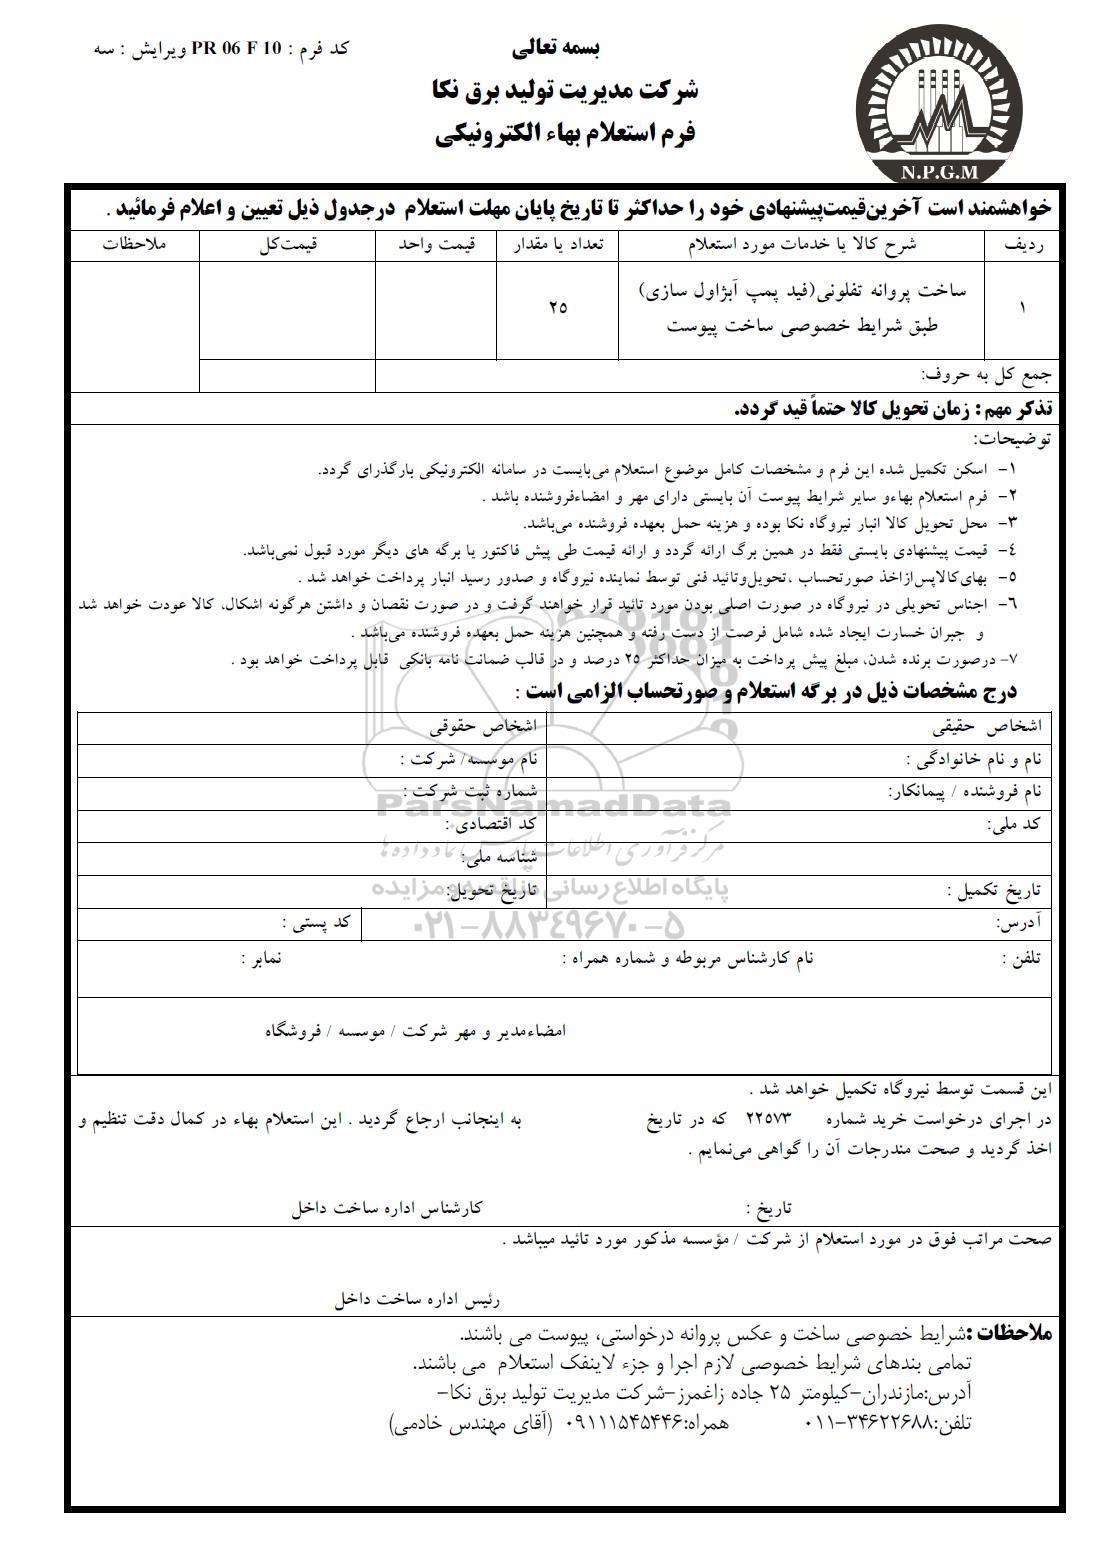 کد فرم : PR 06 F 10 ویرایش : سه
بسمه تعالی
شرکت مدیریت تولید برق نکا
فرم استعلام بهاء الکترونیکی
N.P.G.M
خواهشمند است آخرین‌قیمت‌پیشنهادی خود را حداکثر تا تاریخ پایان مهلت استعلام درجدول ذیل تعیین و اعلام فرمائید .
ردیف شرح کالا یا خدمات مورد استعلام تعداد یا مقدار قیمت واحد قیمت‌کل ملاحظات
۱ ساخت پروانه تفلونی(فید پمپ آبژاول سازی) ۲۵
طبق شرایط خصوصی ساخت پیوست
جمع کل به حروف:
تذکر مهم : زمان تحویل کالا حتماً قید گردد.
توضیحات:
۱- اسکن تکمیل شده این فرم و مشخصات کامل موضوع استعلام می‌بایست در سامانه الکترونیکی بارگذرای گردد.
۲- فرم استعلام بهاءو سایر شرایط پیوست آن بایستی دارای مهر و امضاءفروشنده باشد .
۳- محل تحویل کالا انبار نیروگاه نکا بوده و هزینه حمل بعهده فروشنده می‌باشد.
۴- قیمت پیشنهادی بایستی فقط در همین برگ ارائه گردد و ارائه قیمت طی پیش فاکتور یا برگه های دیگر مورد قبول نمی‌باشد.
۵- بهای‌کالاپس‌ازاخذ صورتحساب ،تحویل‌وتائید فنی توسط نماینده نیروگاه و صدور رسید انبار پرداخت خواهد شد .
۶- اجناس تحویلی در نیروگاه در صورت اصلی بودن مورد تائید قرار خواهند گرفت و در صورت نقصان و داشتن هرگونه اشکال، کالا عودت خواهد شد
و جبران خسارت ایجاد شده شامل فرصت از دست رفته و همچنین هزینه حمل بعهده فروشنده می‌باشد .
۷- درصورت برنده شدن، مبلغ پیش پرداخت به میزان حداکثر ۲۵ درصد و در قالب ضمانت نامه بانکی قابل پرداخت خواهد بود .
درج مشخصات ذیل در برگه استعلام و صورتحساب الزامی است :
اشخاص حقیقی اشخاص حقوقی
نام و نام خانوادگی : نام موسسه/ شرکت :
نام فروشنده / پیمانکار: شماره ثبت شرکت :
ParsNamadData
کد ملی: کد اقتصادی :
مرکز فرآوری اطلاعات پارس نماد داده‌ها
شناسه ملی:
تاریخ تکمیل : تاریخ تحویل:
پایگاه اطلاع رسانی مناقصه و مزایده
آدرس: کد پستی :
۰۲۱-۸۸۳۴۹۶۷۰-۵
تلفن : نام کارشناس مربوطه و شماره همراه : نمابر :
امضاءمدیر و مهر شرکت / موسسه / فروشگاه
این قسمت توسط نیروگاه تکمیل خواهد شد .
در اجرای درخواست خرید شماره ۲۲۵۷۳ که در تاریخ به اینجانب ارجاع گردید . این استعلام بهاء در کمال دقت تنظیم و
اخذ گردید و صحت مندرجات آن را گواهی می‌نمایم .
تاریخ : کارشناس اداره ساخت داخل
صحت مراتب فوق در مورد استعلام از شرکت / مؤسسه مذکور مورد تائید میباشد .
رئیس اداره ساخت داخل
ملاحظات :شرایط خصوصی ساخت و عکس پروانه درخواستی، پیوست می باشند.
تمامی بندهای شرایط خصوصی لازم اجرا و جزء لاینفک استعلام می باشند.
آدرس:مازندران-کیلومتر ۲۵ جاده زاغمرز-شرکت مدیریت تولید برق نکا-
تلفن:۳۴۶۲۲۶۸۸-۰۱۱ همراه:۰۹۱۱۱۵۴۵۴۴۶ (آقای مهندس خادمی)